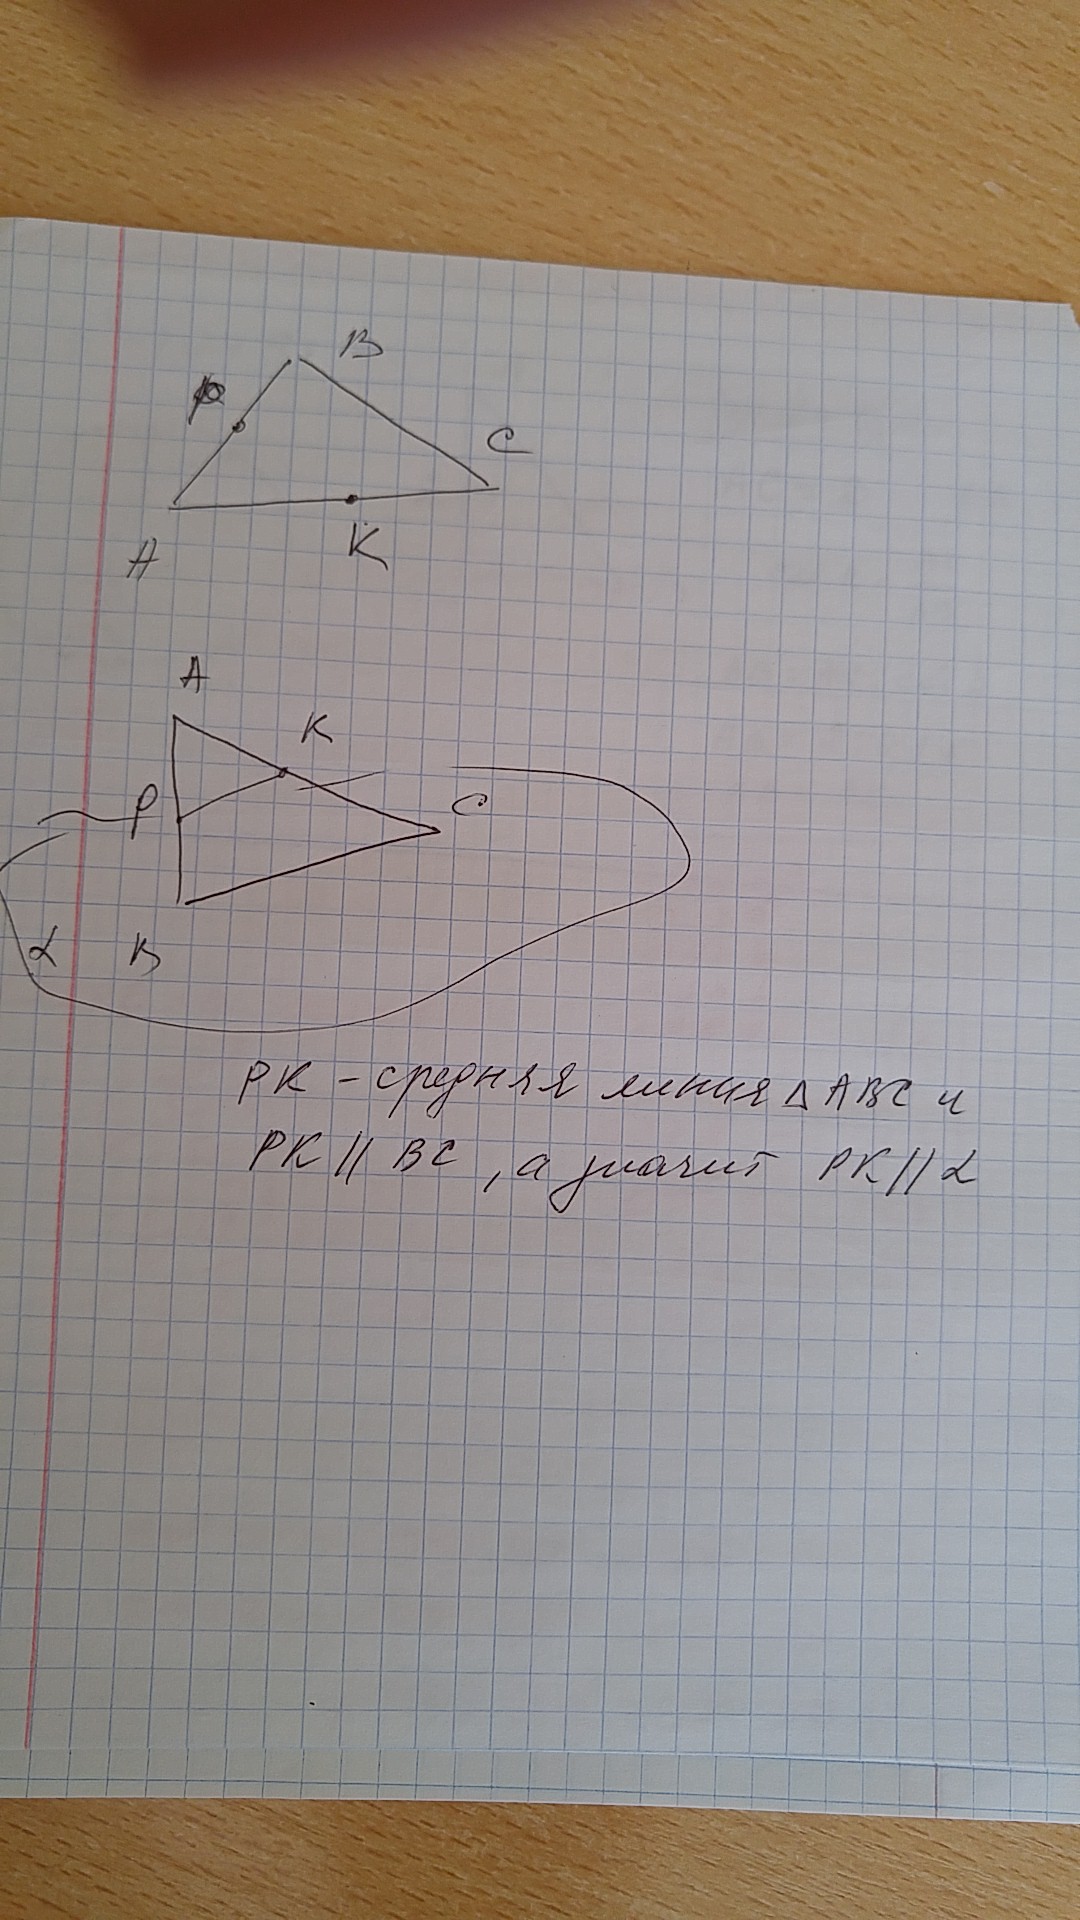 B
P
C
A
K
A
K
P
C
α
B
PK – средняя линия △ ABC и
PK || BC , а значит PK || α